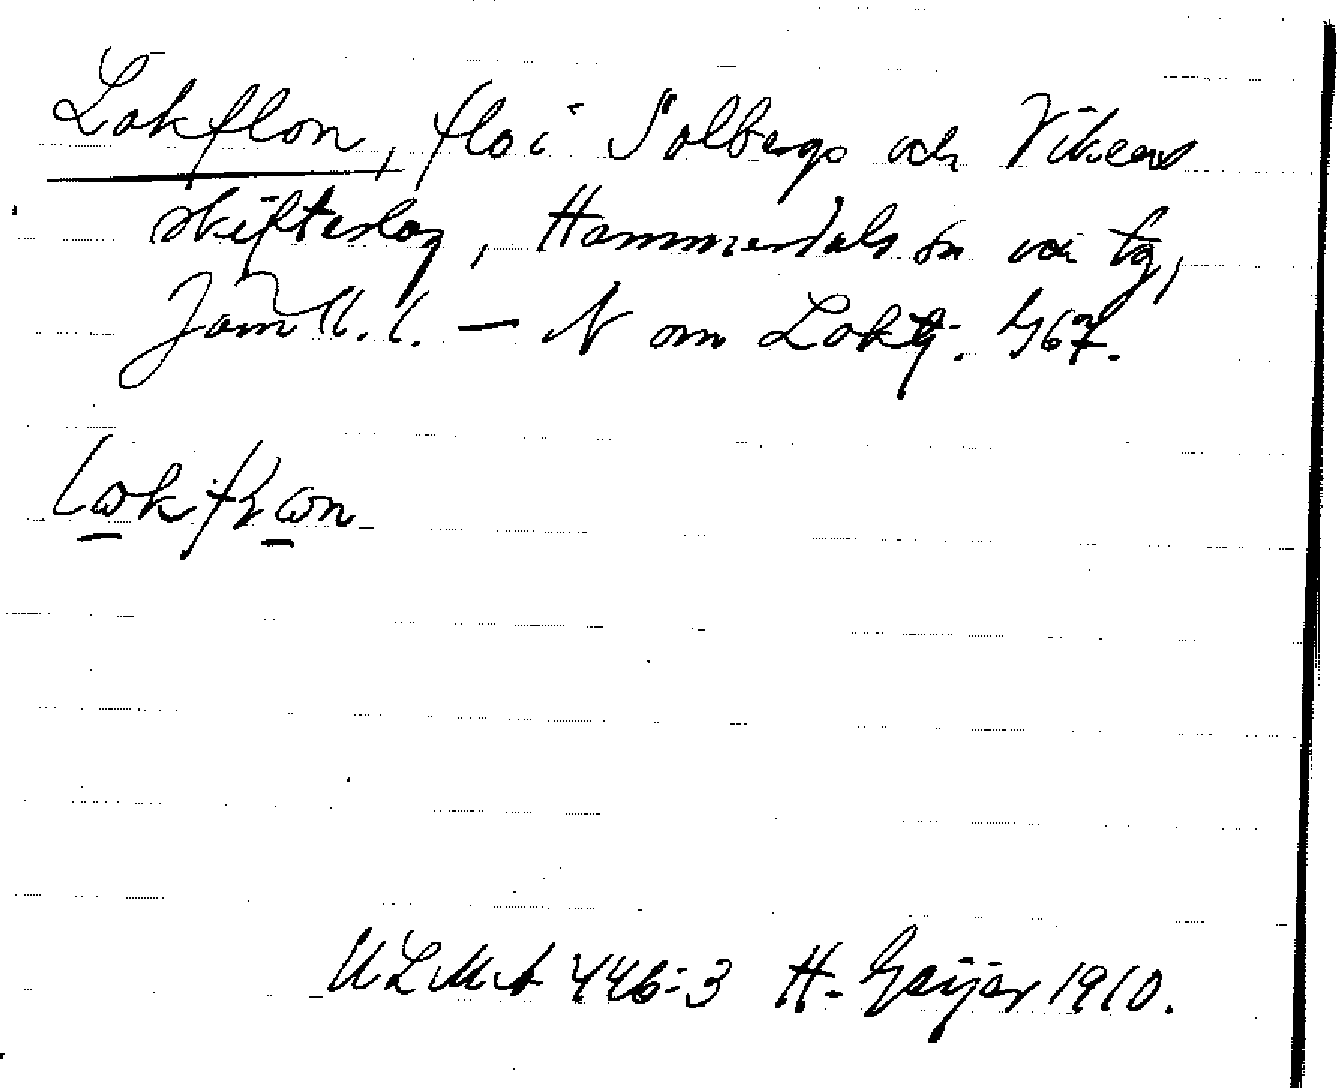 Lokflon, flo i Solbergs och Vikens
skifteslag, Hammerdals sn och tg,
Jämtl. l. — N om Loktj. G67.
lωkfɽωn
ULMA 446:3 H. Geijer 1910.